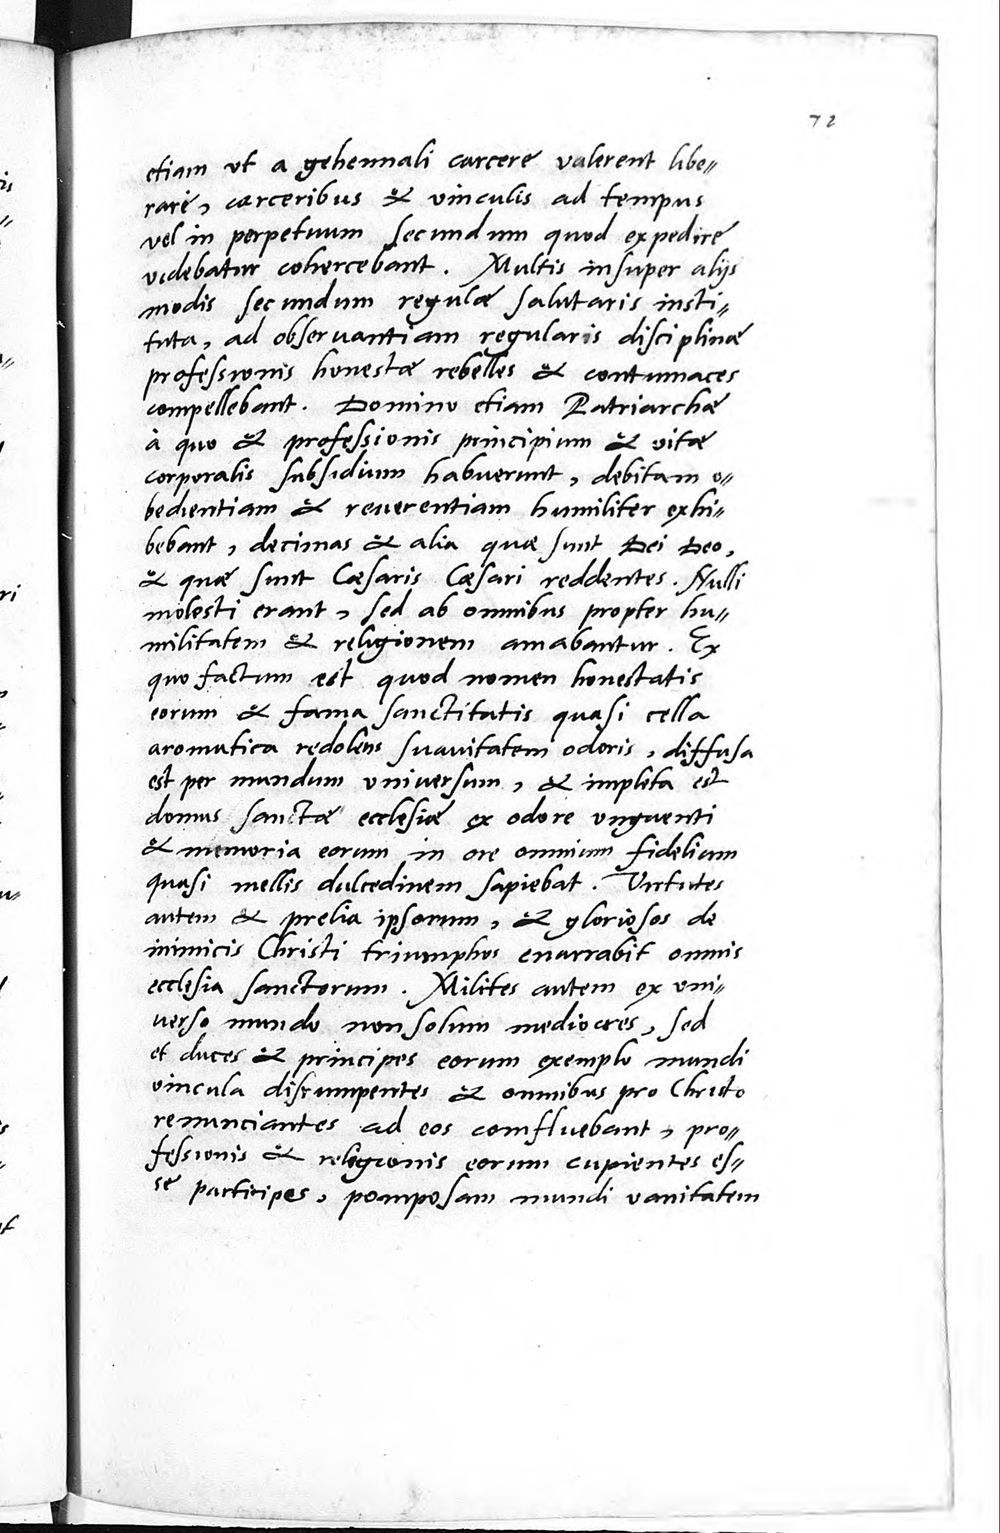 72
etiam vt a gehennali carcere valerent libe=
rare, carceribus & vinculis ad tempus
vel in perpetuum secundum quod expedire
videbatur cohercebant. Multis insuper alijs
modis secundum regulæ salutaris insti=
tuta, ad obseruantiam regularis disciplinæ
professionis honestæ rebelles & contumaces
compellebant. Domino etiam Patriarchæ
à quo & professionis principium & vitæ
corporalis subsidium habuerunt, debitam o=
bedientiam & reuerentiam humiliter exhi=
bebant, decimas & alia quæ sunt Dei Deo,
& quæ sunt Cæsaris Cæsari reddentes. Nulli
molesti erant, sed ab omnibus propter hu=
militatem & religionem amabantur. Ex
quo factum est quod nomen honestatis
eorum & fama sanctitatis quasi cella
aromatica redolens suauitatem odoris, diffusa
est per mundum vniuersum, & impleta est
domus sanctæ ecclesiæ ex odore vnguenti
& memoria eorum in ore omnium fidelium
quasi mellis dulcedinem sapiebat. Virtutes
autem & prelia ipsorum, & gloriosos de
inimicis Christi triumphos enarrabit omnis
ecclesia sanctorum. Milites autem ex vni=
uerso mundo non solum mediocres, sed
et duces & principes eorum exemplo mundi
vincula disrumpentes & omnibus pro Christo
renunciantes ad eos comfluebant, pro=
fessionis & religionis eorum cupientes es=
se participes, pomposam mundi vanitatem